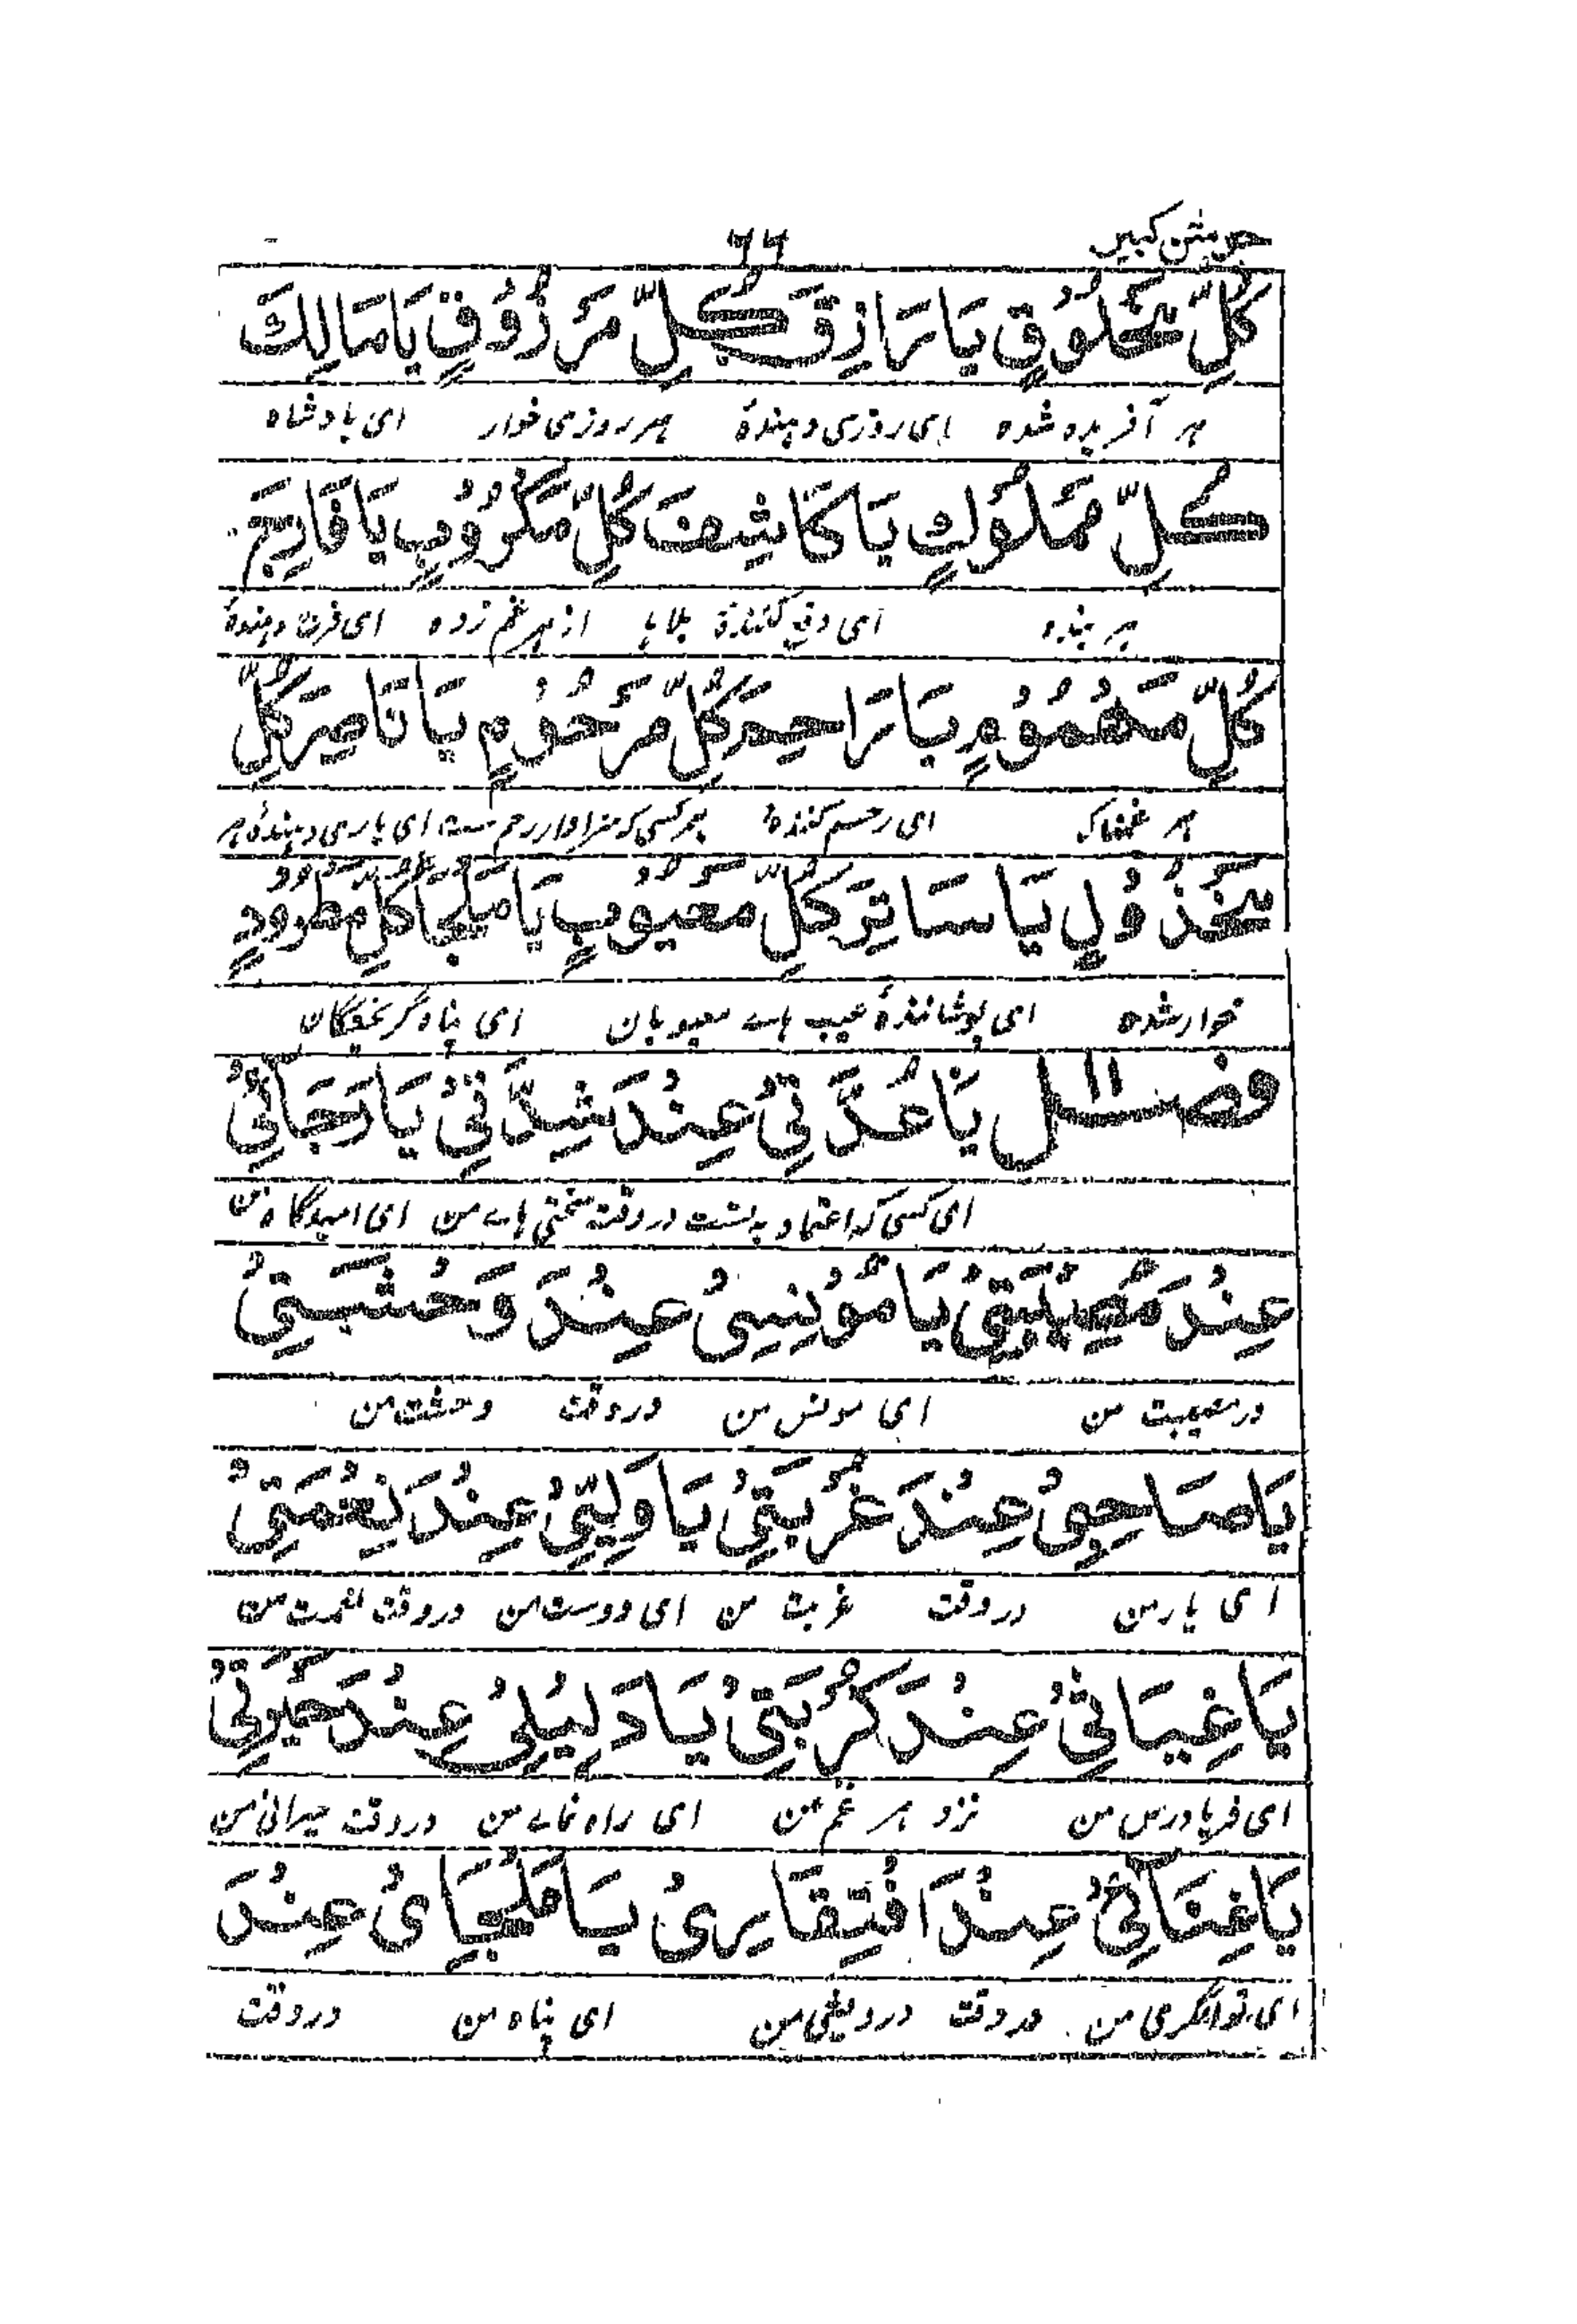 جوشن كبير
٦٦
كُلِّ مَخْلُوْقٍ يَا رَازِقَ كُلِّ مَرْزُوْقٍ يَا مَالِكَ
هر آفریده شده ای روزی دهندهٔ هر روزی خوار ای بادشاه
كُلِّ مَمْلُوْكٍ يَا كَاشِفَ كُلِّ مَكْرُوْبٍ يَا فَارِجَ
هر بنده ای دفع کنندهٔ بلاها از هر غم زده ای فرت دهندهٔ
كُلِّ مَهْمُوْمٍ يَا رَاحِمَ كُلِّ مَرْحُوْمٍ يَا نَاصِرَ كُلِّ
هر غمناک ای رحم کنندهٔ هر کسی که سزاوار رحم ست ای یاری دهندهٔ هر
مَخْذُوْلٍ يَا سَاتِرَ كُلِّ مَعْيُوْبٍ يَا مَلْجَاَ كُلِّ مَطْرُوْدٍ
خوار شده ای پوشانندهٔ عیب هاے معیوبان ای پناه گریختگان
فصل يَا عُدَّتِيْ عِنْدَ شِدَّتِيْ يَا رَجَائِيْ
ای کسی که اعتماد به تست در وقت سختی هاے من ای امیدگاه من
عِنْدَ مُصِيْبَتِيْ يَا مُوْنِسِيْ عِنْدَ وَحْشَتِيْ
در مصیبت من ای مونس من در وقت وحشت من
يَا صَاحِبِيْ عِنْدَ غُرْبَتِيْ يَا وَلِيِّيْ عِنْدَ نِعْمَتِيْ
ای یار من در وقت غربت من ای دوست من در وقت نعمت من
يَا غِيَاثِيْ عِنْدَ كُرْبَتِيْ يَا دَلِيْلِيْ عِنْدَ حَيْرَتِيْ
ای فریادرس من نزد هر غم من ای راه نماے من در وقت حیرانی من
يَا غِنَائِيْ عِنْدَ افْتِقَارِيْ يَا مَلْجَايْ عِنْدَ
ای توانگری من در وقت درویشی من ای پناه من در وقت